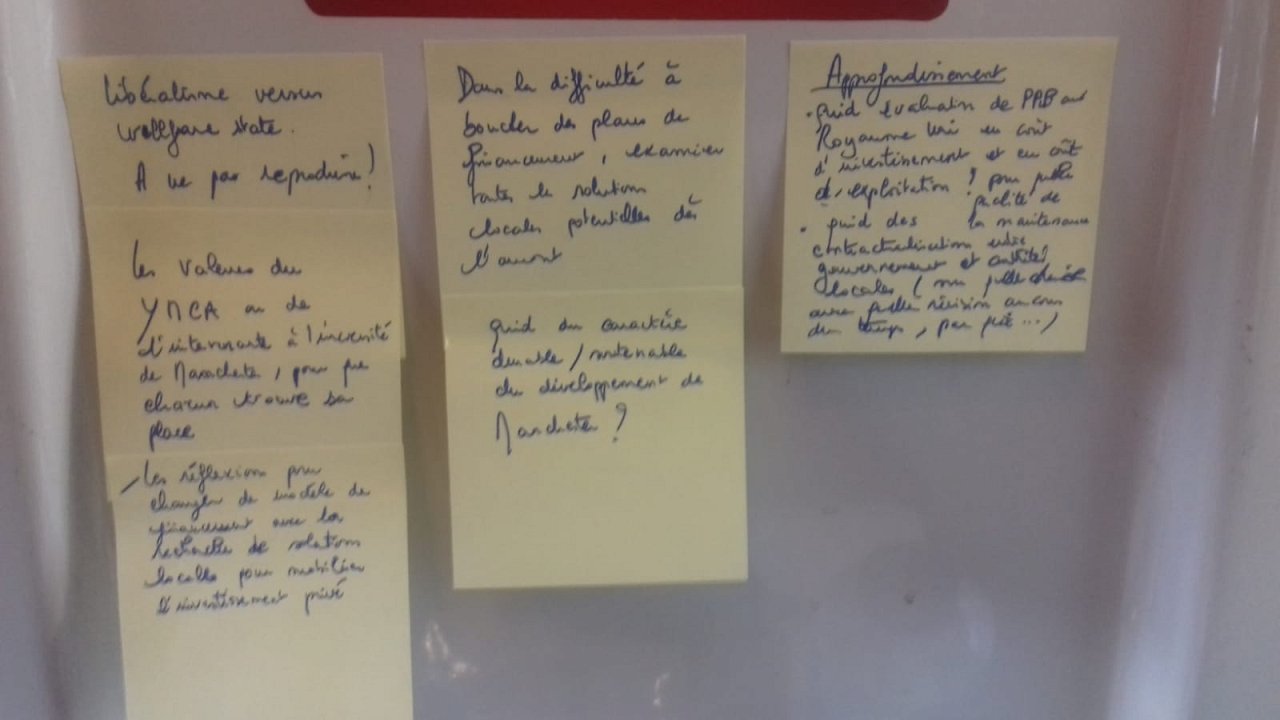 Libéralisme versus
wellfare state.
A ne pas reproduire !
Les valeurs du
YMCA ou de
d'intervenante à l'université
de Manchester, pour que
chacun trouve sa
place
Les réflexions pour
changer de modèle de
financement avec la
recherche de solutions
locales pour mobiliser
l'investissement privé
Dans la difficulté à
boucler des plans de
financement, examiner
toutes les solutions
locales potentielles dès
l'amont
quid du caractère
durable / soutenable
du développement de
Manchester ?
Approfondissement
. quid évaluation de PPP au
Royaume Uni en coût
d'investissement et en coût
d'exploitation ? pour quelle
qualité de
la maintenance
. quid des
contractualisation entre
gouvernement et autorités
locales ( sur quelle durée
avec quelle révision au cours
du temps, par qui ... )